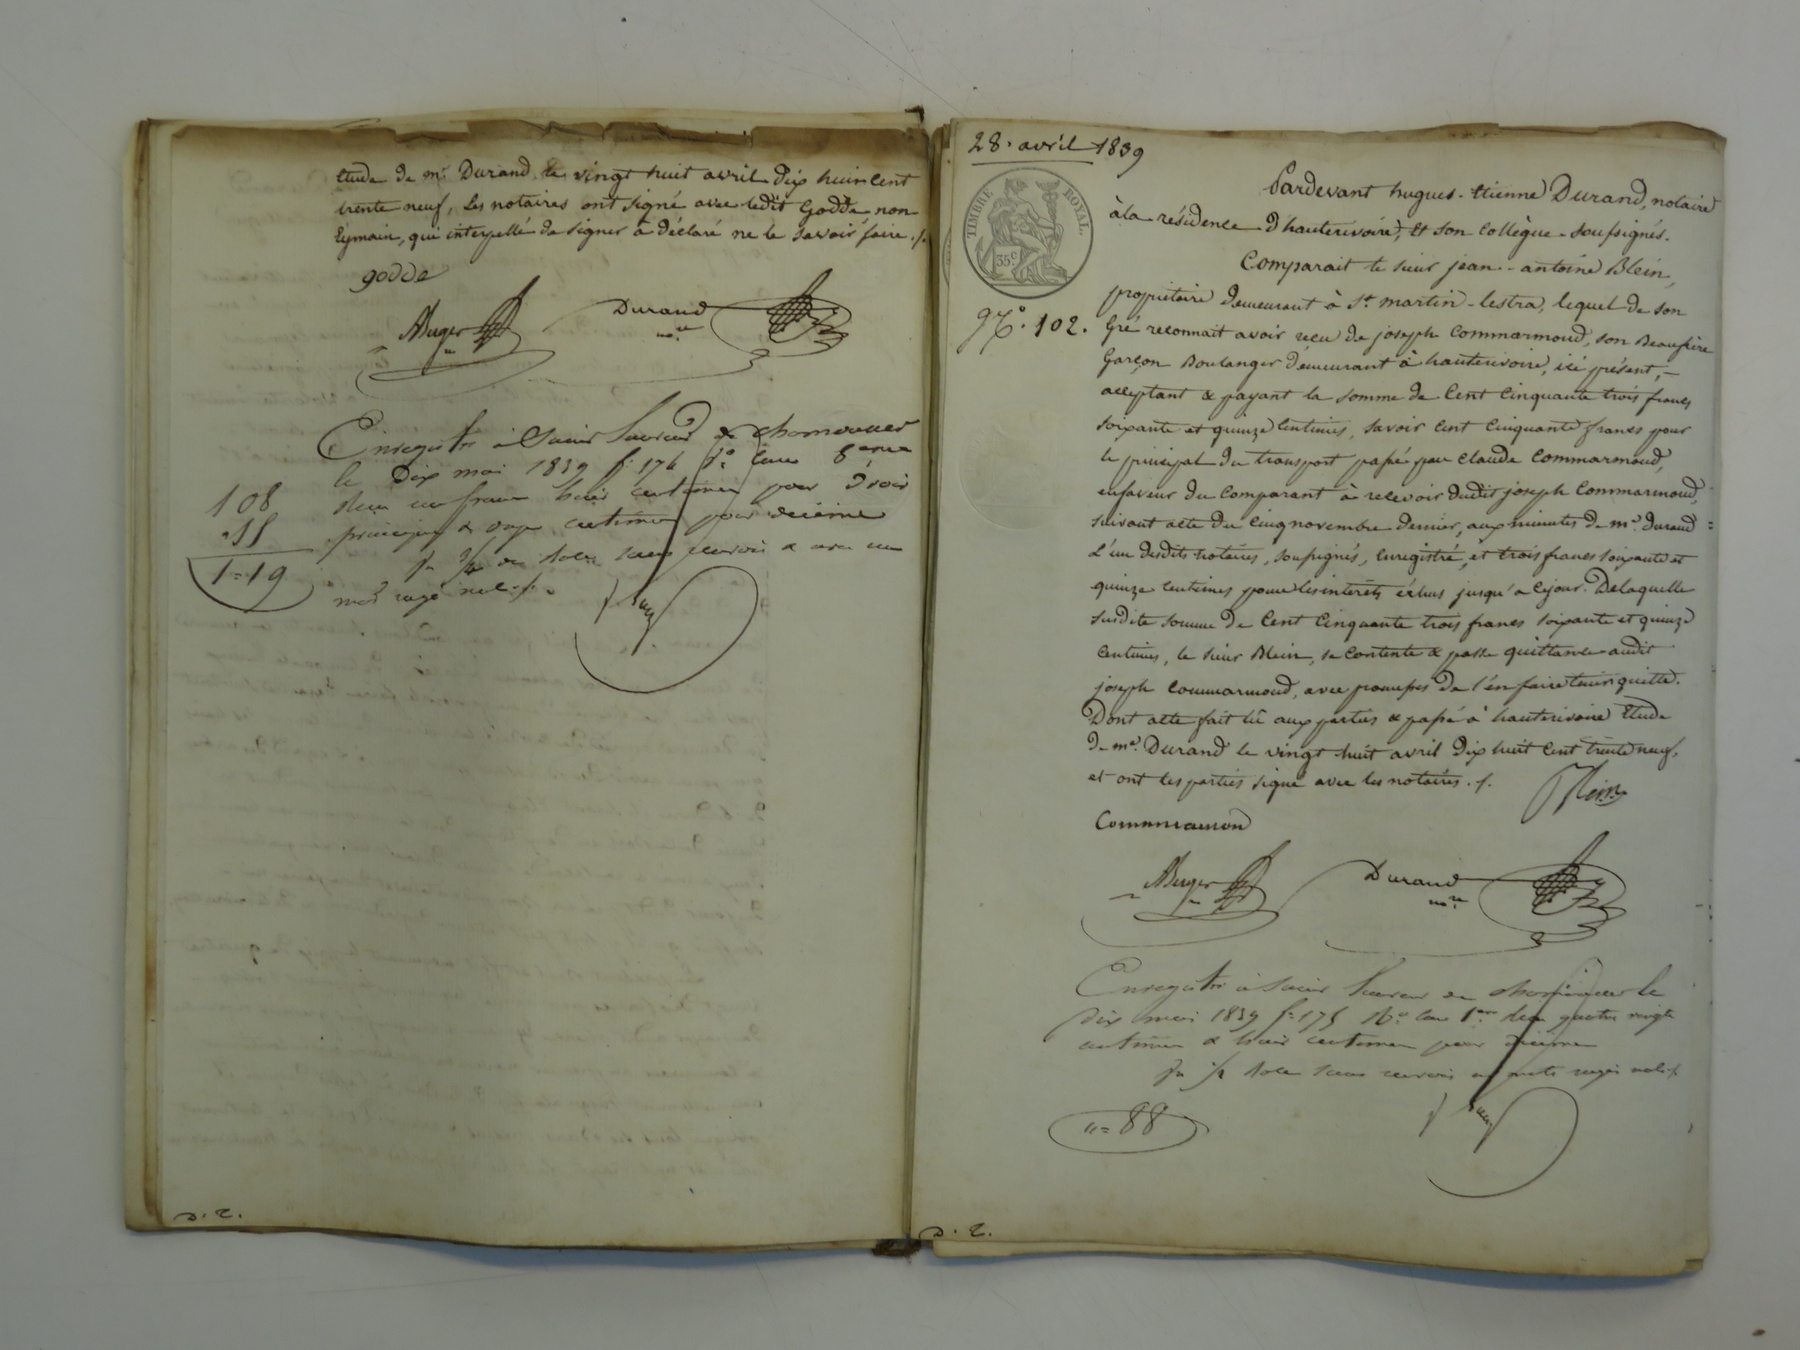 Etude de me Durand le vingt huit avril dix huit cent
trente neuf, Les notaires ont signé avec ledit Godde non
Eymain, qui interpellé de signer a déclaré ne le savoir faire ./.
godde
Auger
Durand
nore
Enregistré à Saint Laurent de chamousset
le dix mai 1839 fo 176
reçu un franc huit centimes pour droit
principal & onze centimes pour décime
mot rayé nul ./.
108
11
1=19
D. E.
28. avril 1839
TIMBRE ROYAL.
35c
No. 102.
Pardevant hugues-Etienne Durand, notaire
à la résidence d'hauterivoire, Et son Collègue soussignés.
Comparait le sieur jean-antoine Blein,
propriétaire demeurant à St. martin-lestra, lequel de son
Gré reconnait avoir reçu de joseph Commarmond, son Beaufrère
Garçon Boulanger demeurant à hauterivoire, ici présent,
acceptant & payant la somme de Cent Cinquante trois francs
soixante et quinze Centimes, savoir Cent Cinquante francs pour
le principal du transport passé par Claude Commarmond,
en faveur du Comparant à recevoir dudit joseph Commarmond,
suivant acte du Cinq novembre dernier, aux minutes de me. Durand
L'un desdits notaires, soussignés, Enregistré, et trois francs soixante et
quinze Centimes pour les intérêts échus jusqu'à Cejour. De laquelle
susdite somme de Cent Cinquante trois francs soixante et quinze
Centimes, le sieur Blein, se Contente & passe quittance audit
joseph Commarmond, avec promesse de l'en faire tenir quitte.
Dont acte fait lû aux parties & passé à hauterivoire Etude
de me. Durand le vingt-huit avril dix huit Cent trente neuf,
et ont les parties signé avec les notaires ./.
Blein
Commarmond
Auger
Durand
nore
Enregistré à Saint Laurent de chamousset le
dix mai 1839 fo 175 reçu quatre vingts
centimes & huit centimes pour décime
"=88
D. E.